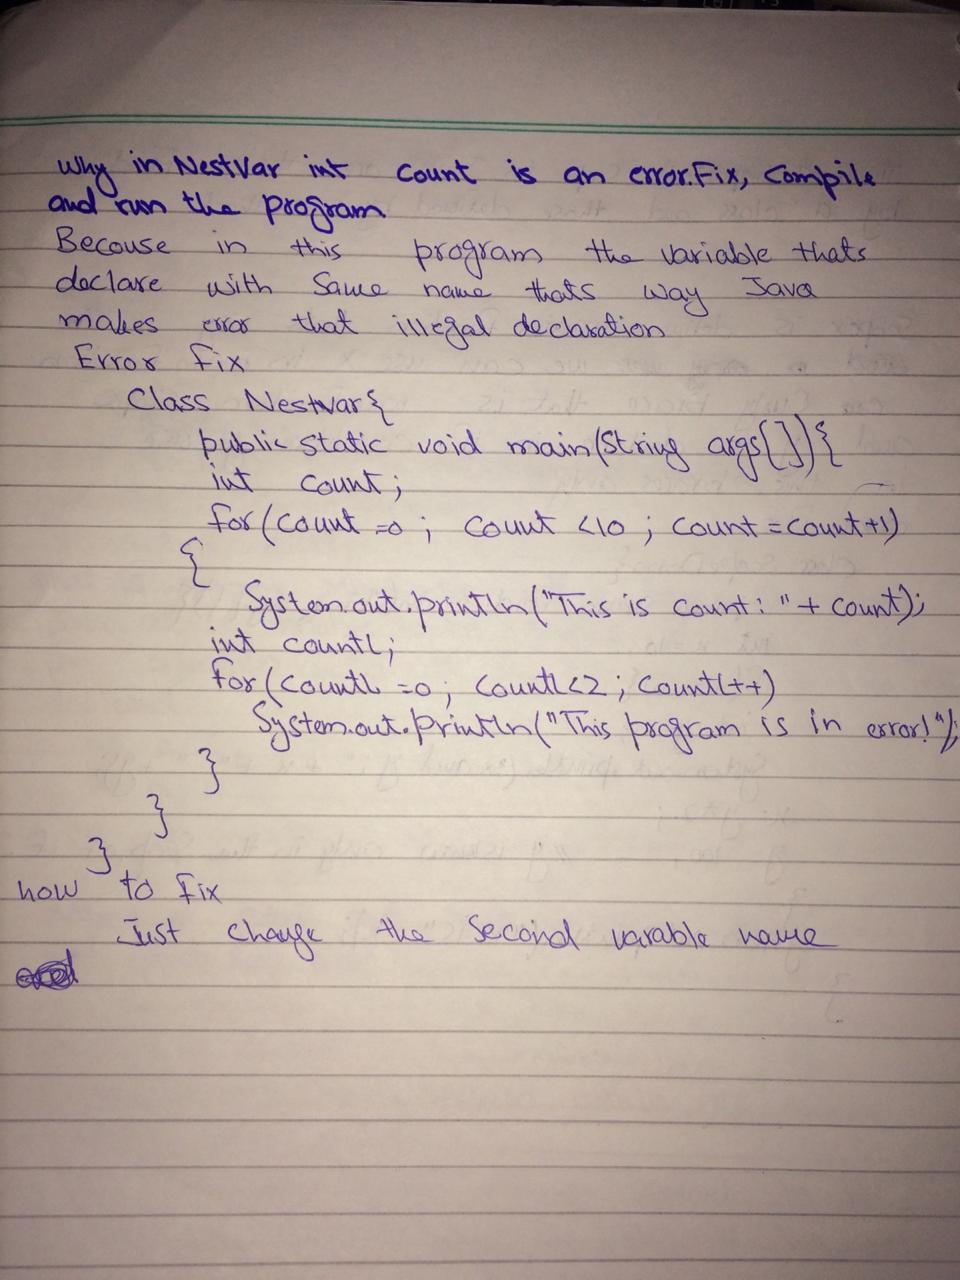 Why in NestVar int count is an error.Fix, Compile
and run the program
Becouse in this program the variable thats
declare with Same name thats way Java
makes error that illegal declaration
Error fix
Class Nestvar{
public static void main(String args[]){
int count;
for(count =0 ; count <10 ; count =count+1)
{
System.out.println("This is count: "+ count);
int count1;
for(count1 =0 ; count1<2 ; count1++)
System.out.println("This program is in error!");
}
}
}
how to fix
Just change the Second varable name